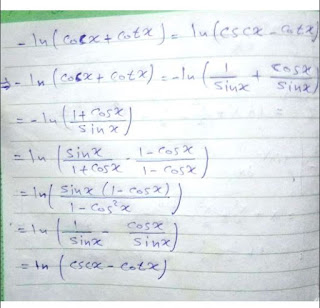 -ln(cosx+cotx) = ln(cscx-cotx)
⇒ -ln(cosx+cotx) = -ln(1/sinx + cosx/sinx)
= -ln(1+cosx/sinx)
= ln(sinx/1+cosx · 1-cosx/1-cosx)
= ln(sinx(1-cosx)/1-cos²x)
= ln(1/sinx - cosx/sinx)
= ln(cscx-cotx)